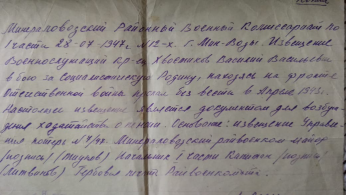 Минераловодский Районный Военный Комиссариат по
I части 28-07 1947г. N 12-х. г. Мин-Воды. Извещение
Военнослужащий кр-ец Хвостиков Василий Васильевич
в бою за Социалистическую Родину, находясь на фронте
Отечественной войны пропал без вести в Апреле 1943г.
Настоящее извещение является документом для возбуж
дения ходатайства о пенсии. Основание: извещение Управле
ния потерь N Минераловодский райвоенком майор
(подпись) I части Капитан (подпись)
(Литвинов) Гербовая печать Райвоенкомат.